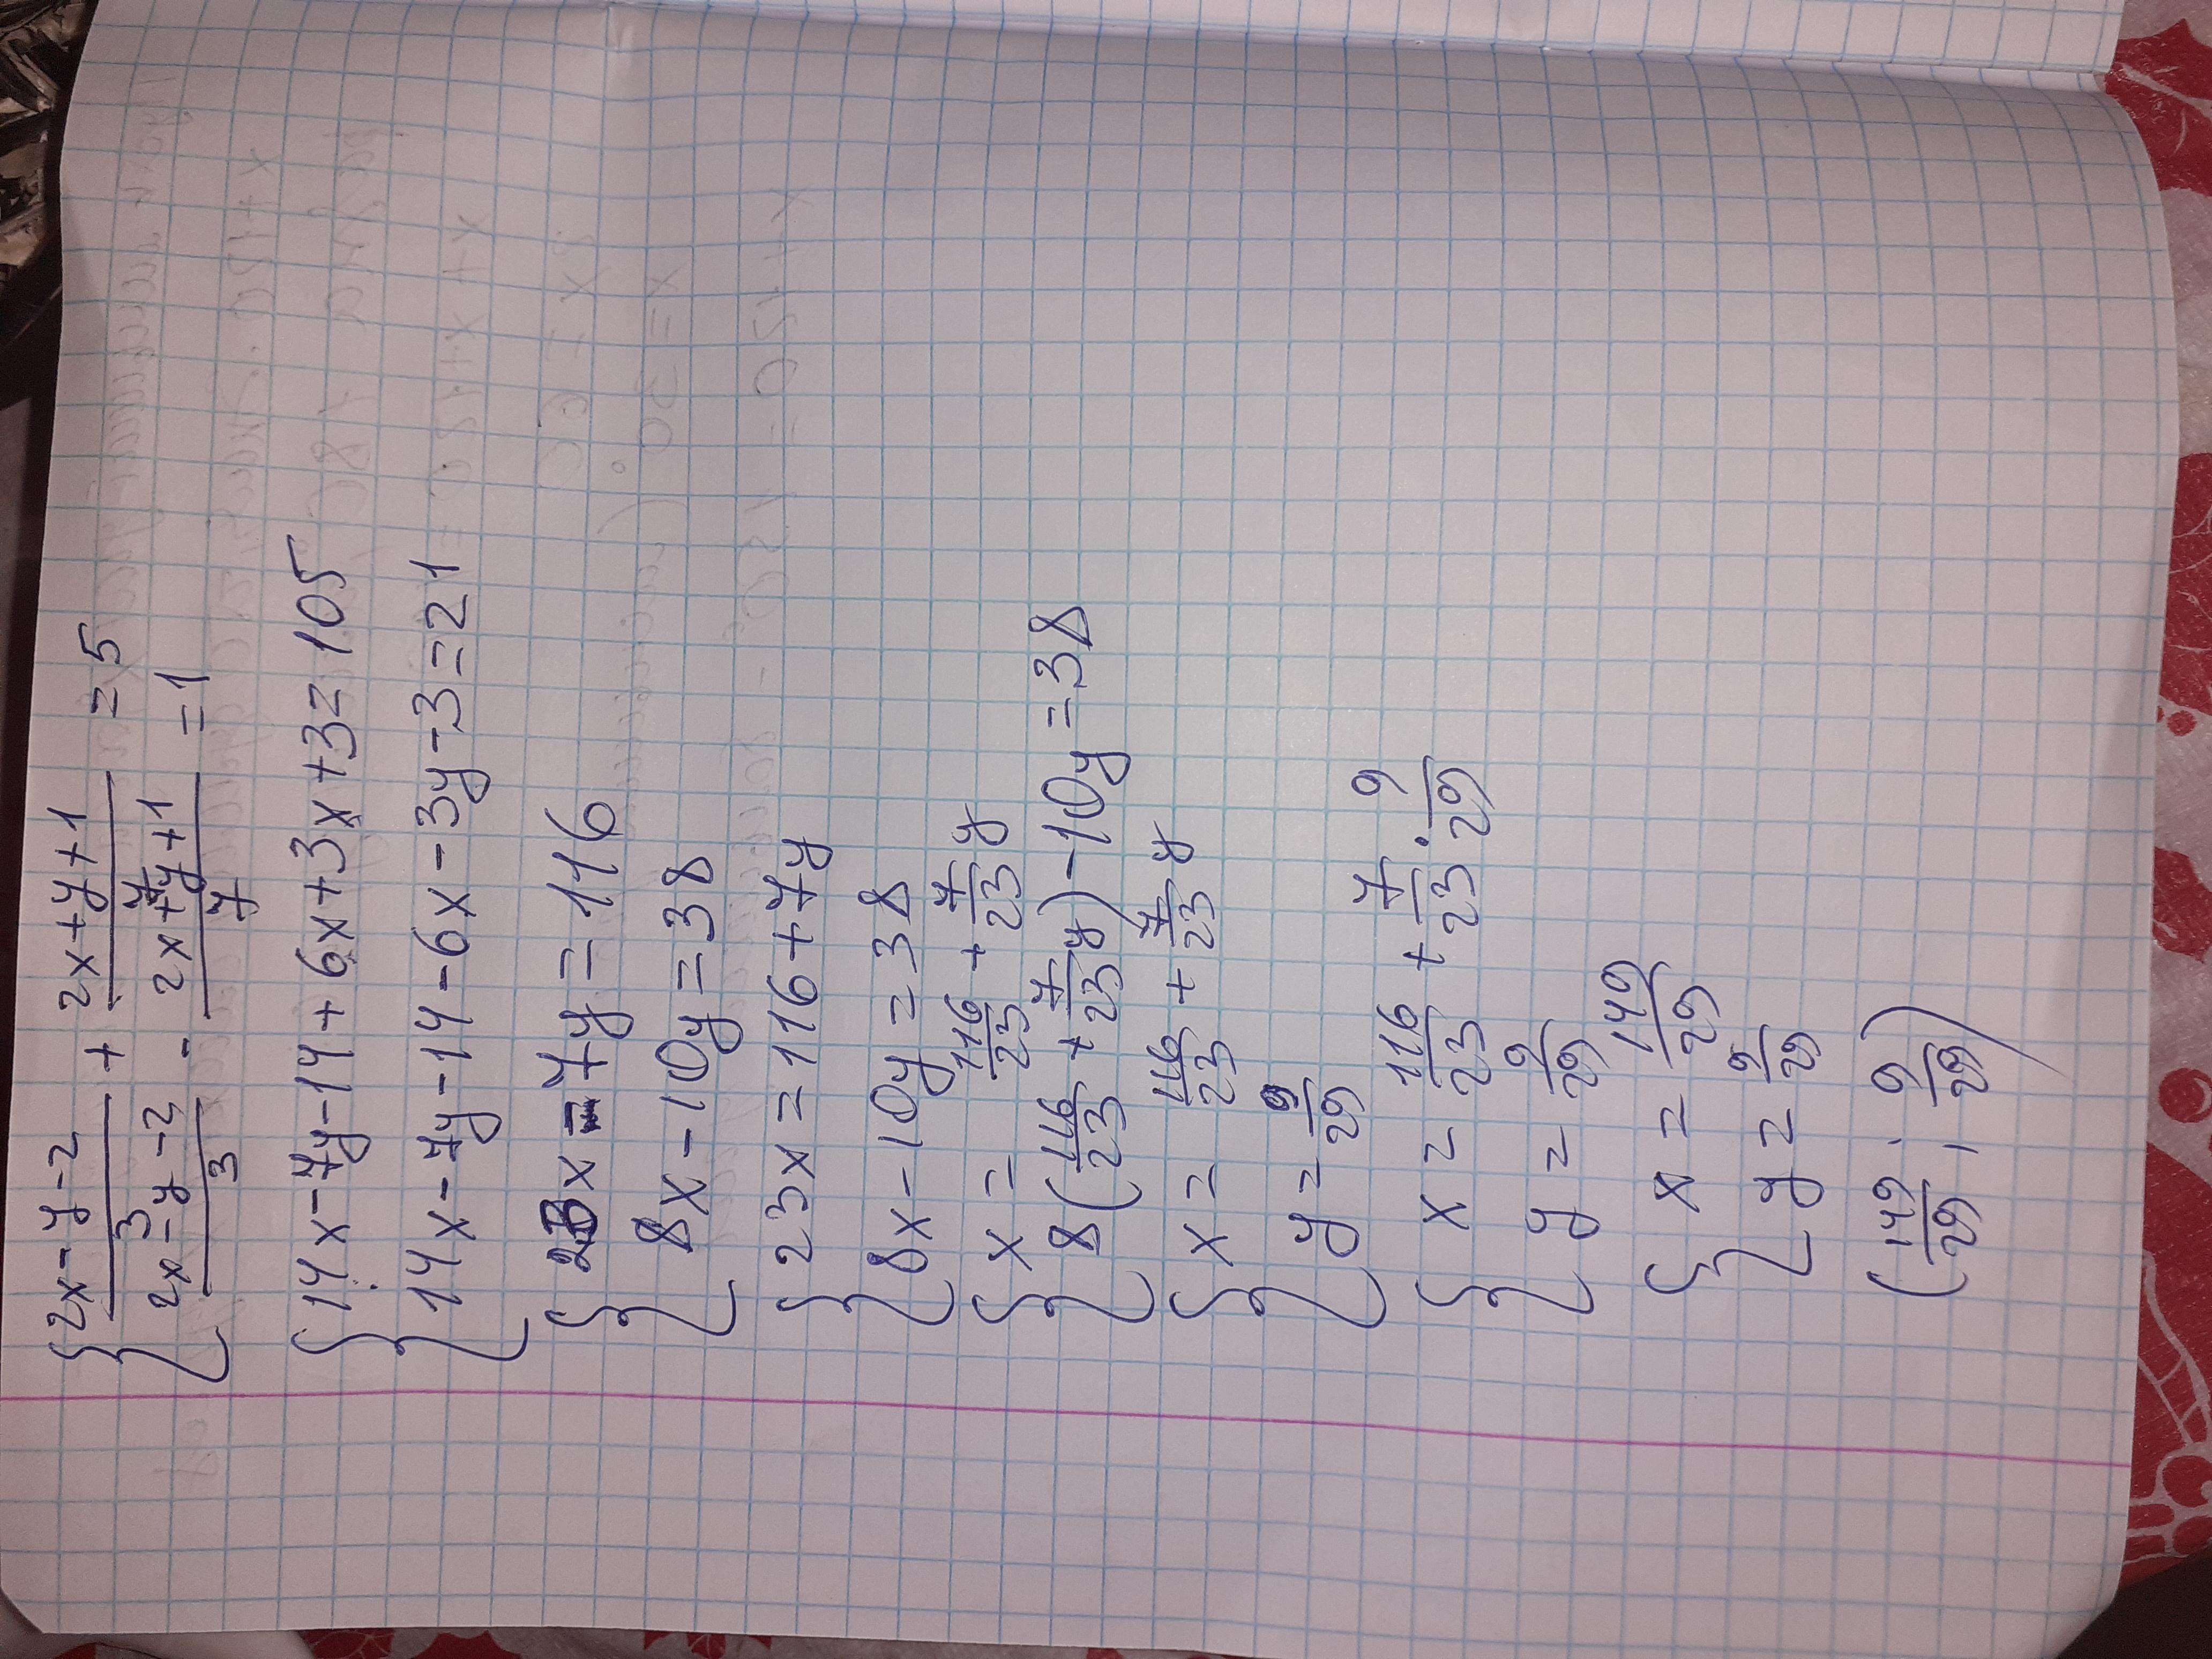 { (2x-y-2)/3 + (2x+y+1)/7 = 5
(2x-y-2)/3 - (2x+y+1)/7 = 1
{ 14x-7y-14+6x+3x+3=105
14x-7y-14-6x-3y-3=21
{ 23x-7y=116
8x-10y=38
{ 23x=116+7y
8x-10y=38
{ x= 116/23 + 7/23 y
8(116/23 + 7/23 y)-10y=38
{ x= 116/23 + 7/23 y
y= 9/29
{ x= 116/23 + 7/23 · 9/29
y= 9/29
{ x= 149/29
y= 9/29
(149/29; 9/29)